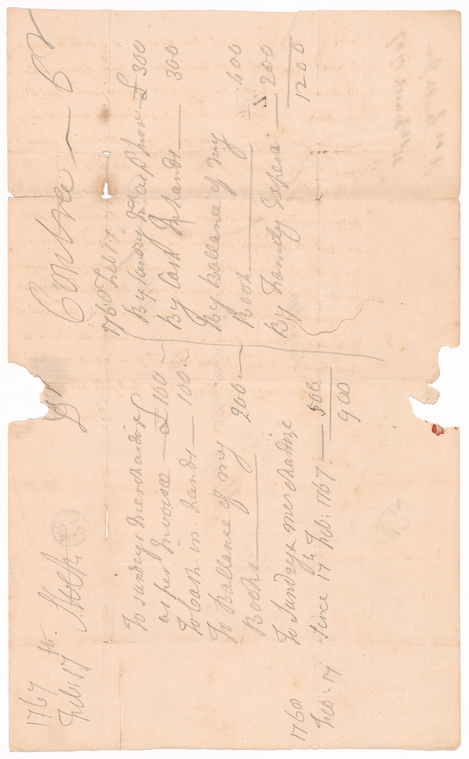 1767
Feb: 17th. Stock Dr
To Sundrys Merchandize
as per Invoice — £100
To Cash in hands — 100
To Ballance of my
Books — 200
1760
Feb: 17 To Sundrys merchandize
Since 17th Feb: 1767 — 500
900
Contra — Cr
1760 Feb 17
By Sundry £300
By Cash In hands — 300
By Ballance of my
Book — 400
By Family — 200
1200